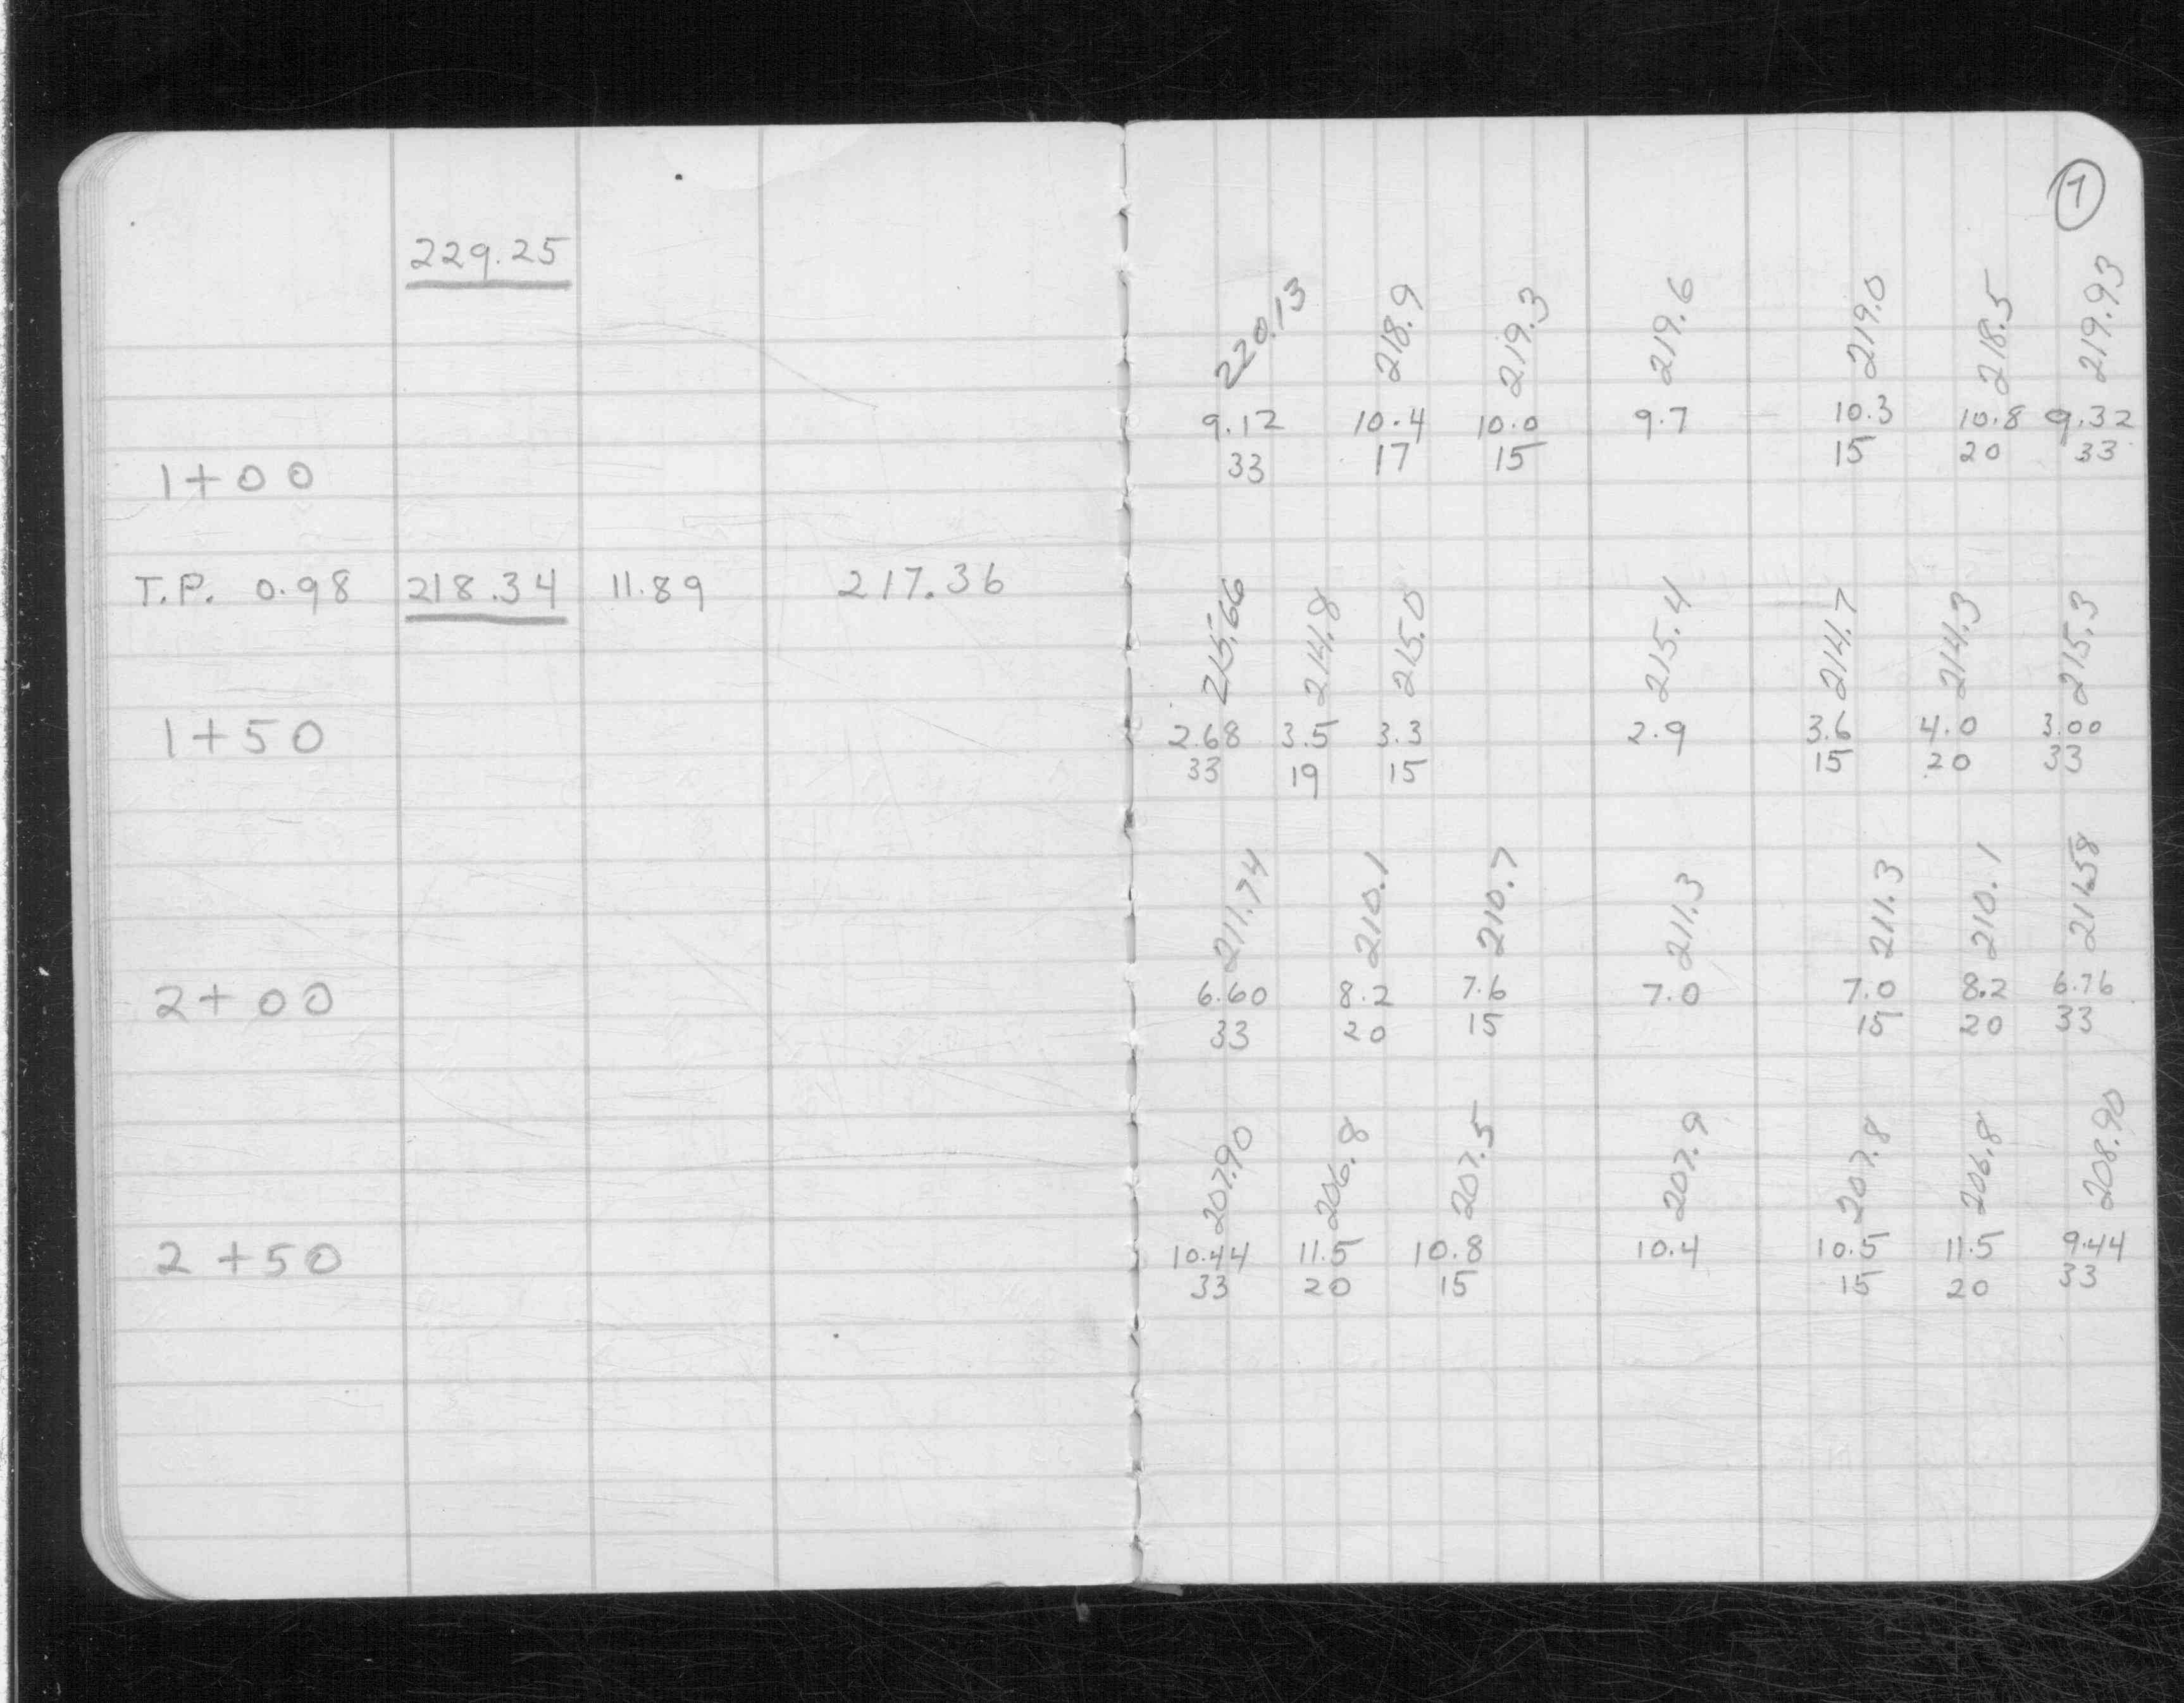 7
229.25
220.13 218.9 219.3 219.6 219.0 218.5 219.93
9.12 10.4 10.0 9.7 10.3 10.8 9.32
1+00 33 17 15 15 20 33
T.P. 0.98 218.34 11.89 217.36
215.66 214.8 215.0 215.4 214.7 214.3 215.3
1+50 2.68 3.5 3.3 2.9 3.6 4.0 3.00
33 19 15 15 20 33
211.74 210.1 210.7 211.3 211.3 210.1 211.58
2+00 6.60 8.2 7.6 7.0 7.0 8.2 6.76
33 20 15 15 20 33
207.90 206.8 207.5 207.9 207.8 206.8 208.90
2+50 10.44 11.5 10.8 10.4 10.5 11.5 9.44
33 20 15 15 20 33